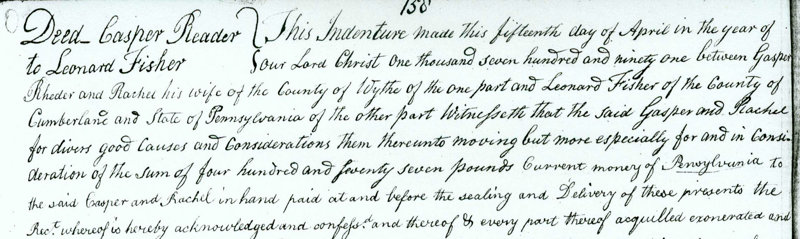 158
Deed Casper Reader } This Indenture made this fifteenth day of April in the year of
to Leonard Fisher } our Lord Christ One thousand seven hundred and ninety one between Gasper
Rheder and Rachel his wife of the County of Wythe of the one part and Leonard Fisher of the County of
Cumberland and State of Pennsylvania of the other part Witnesseth that the said Gasper and Rachel
for divers good Causes and Considerations them thereunto moving but more especially for and in Consi-
deration of the sum of four hundred and seventy seven pounds Current money of Pensylvania to
the said Casper and Rachel in hand paid at and before the sealing and Delivery of these presents the
Rect. whereof is hereby acknowledged and confessd. and thereof & every part thereof acquilled exonerated and